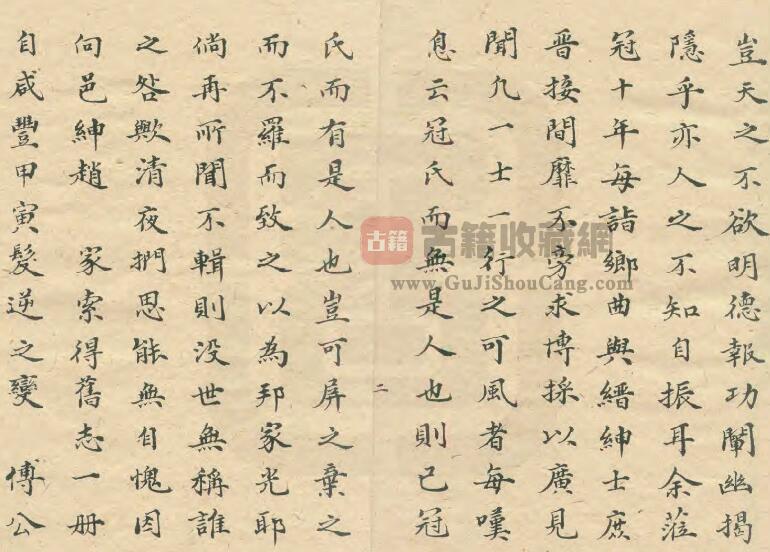 豈天之不欲明德報功闡幽揭
隱乎亦人之不知自振耳余蒞
冠十年每詣鄉曲與縉紳士庶
晋接間靡不旁求博採以廣見
聞凡一士一行之可風者每嘆
息云冠氏而無是人也則已冠
氏而有是人也豈可屏之棄之
而不羅而致之以為邦家光耶
倘再所聞不輯則没世無稱誰
之咎歟清夜捫思能無自愧因
向邑紳趙 家索得舊志一册
自咸豐甲寅髮逆之變 傅公
二
古籍
古籍收藏網
www.GuJiShouCang.com